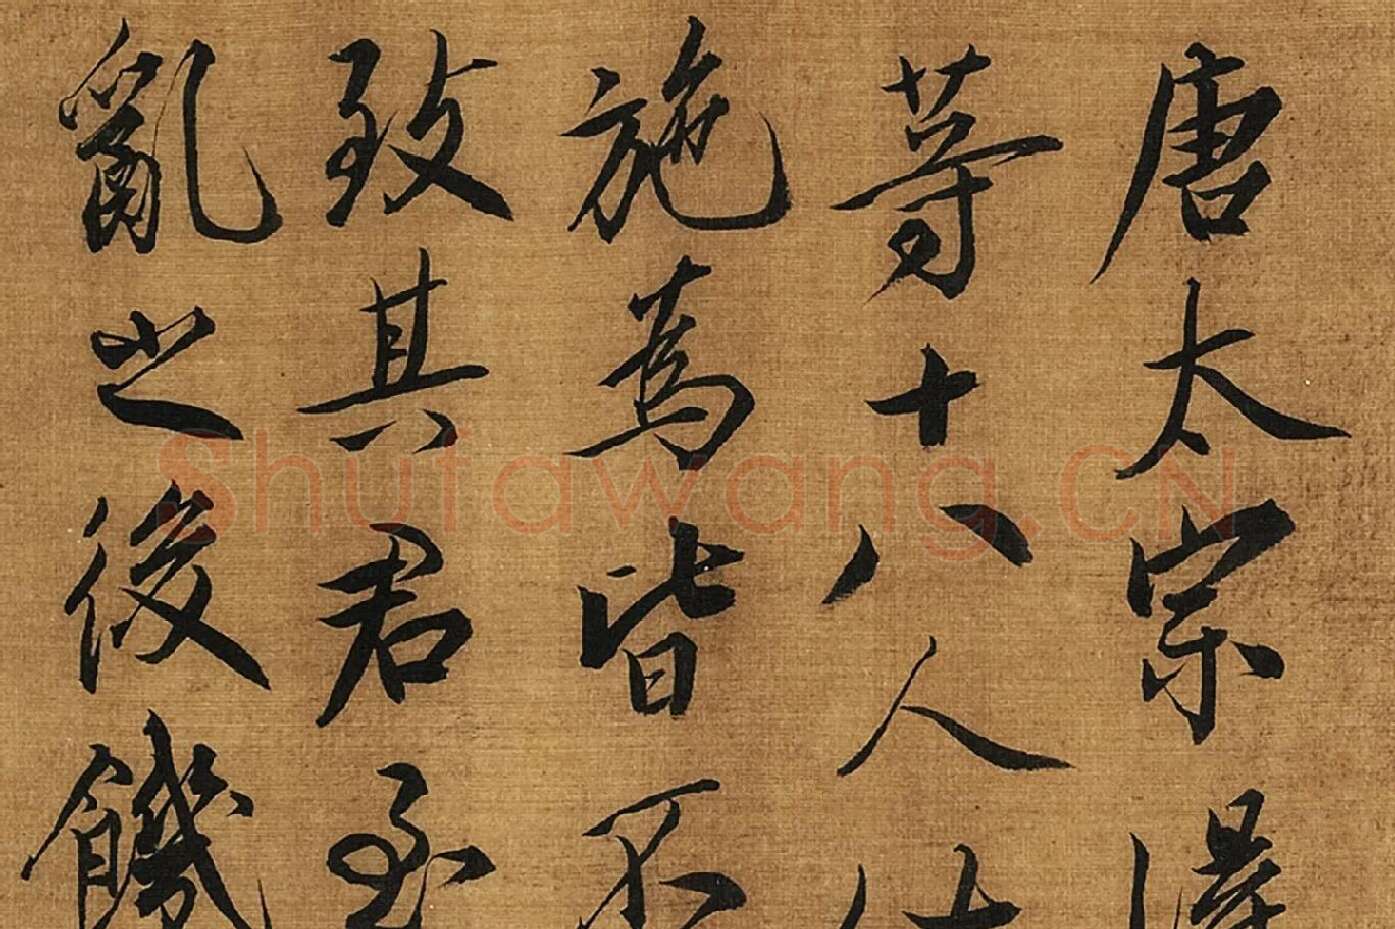 唐太宗得
等十八人仕
施爲皆不
致其君至
亂之後饑
Shufawang.CN